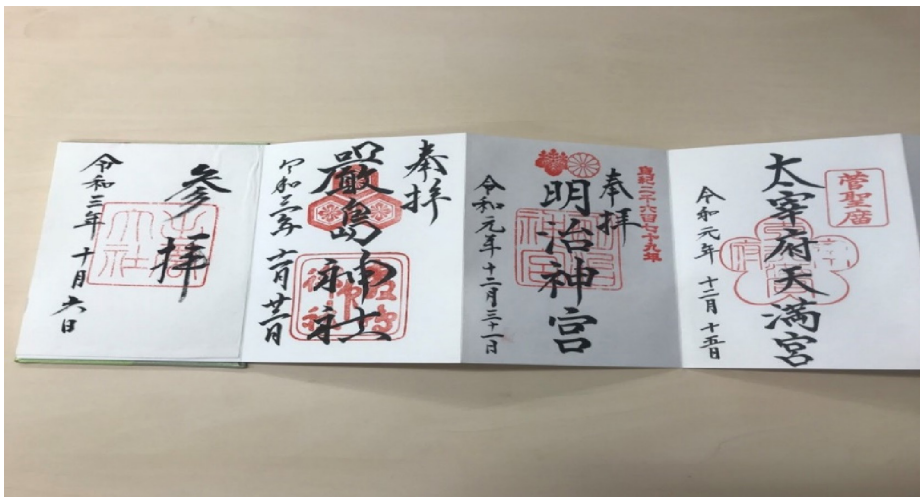 菅聖廟
太宰府天満宮
令和元年 十二月 十五日
皇紀二千六百七十九年
奉拝
明治神宮
令和元年十二月三十一日
奉拝
嚴島神社
参拝
令和三年 十月 六日